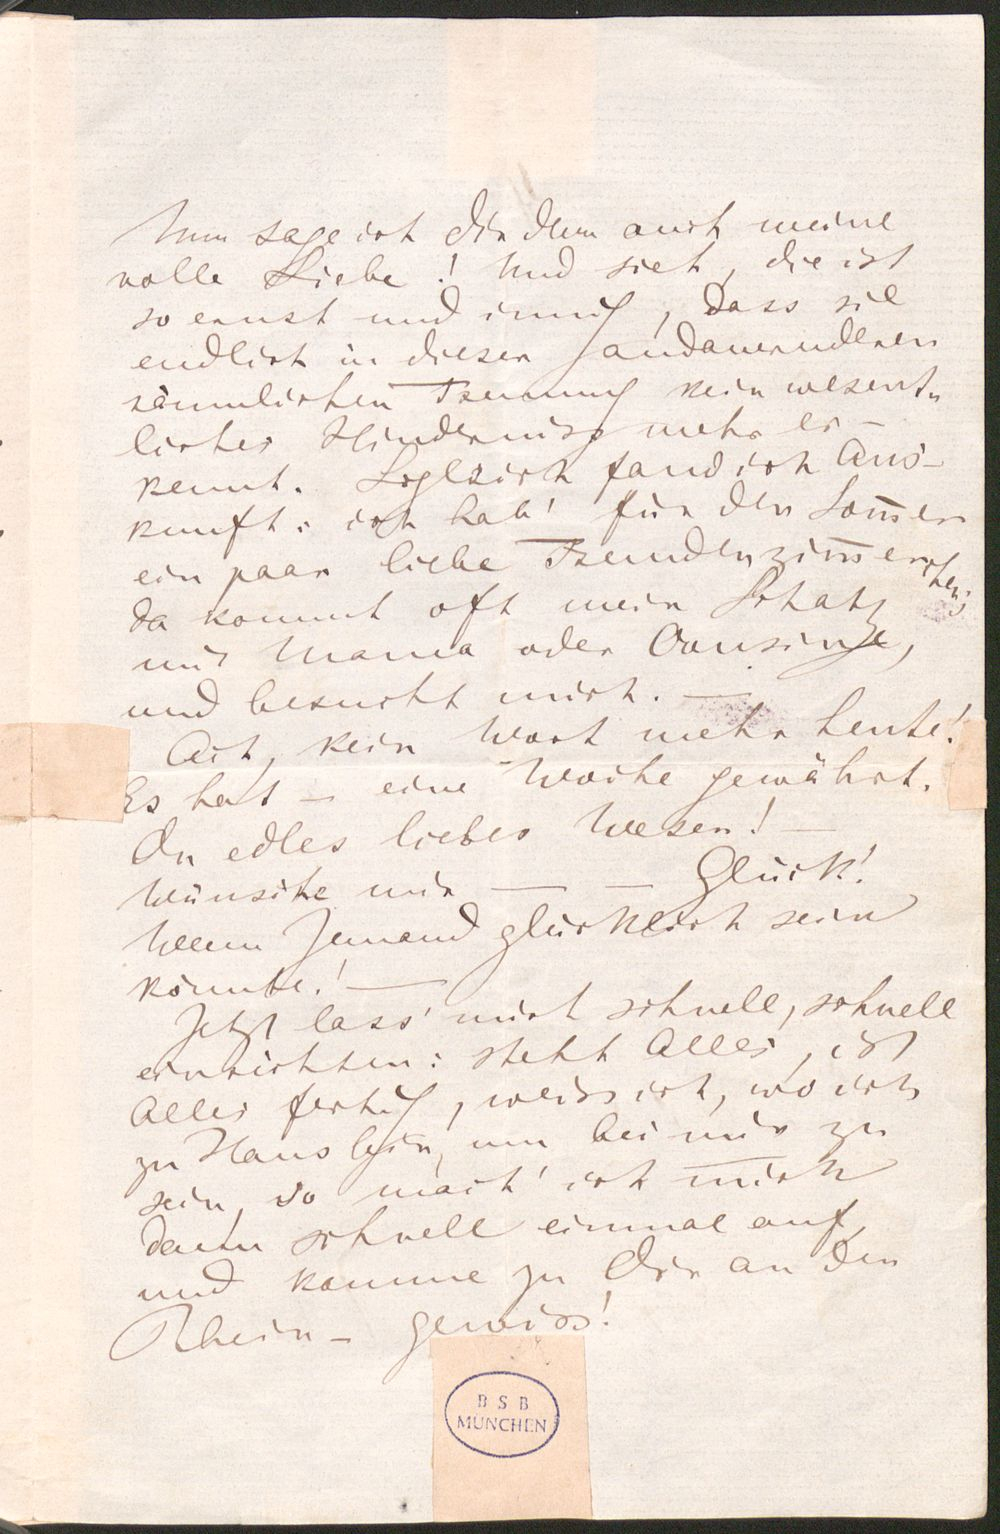 Nun sage ich Dir denn auch meine
volle Liebe! Und sieh, die ist
so ernst und innig, dass sie
endlich in dieser fandauernderen
räumlichen Trennung kein wesent-
liches Hinderniss mehr er-
kennt. Sogleich fand ich Aus-
kunft: ich hab' für den Som̅er
ein paar liebe Fremdenzim̅erchen;
da kommt oft mein Schatz
mit Mama oder Cousine,
und besucht mich. —
Ach, kein Wort mehr heute!
Es hat — eine Woche gewährt.
Du edles liebes Wesen! —
Wünsche mir — — Glück!
Wenn Jemand glücklich sein
könnte! —
Jetzt lass' mich schnell, schnell
einrichten: steht Alles, ist
Alles fertig, weiss ich, wo ich
zu Haus bin, um bei mir zu
sein, so mach' ich mich
dann schnell einmal auf,
und komme zu Dir an den
Rhein — gewiss!
B S B
MÜNCHEN